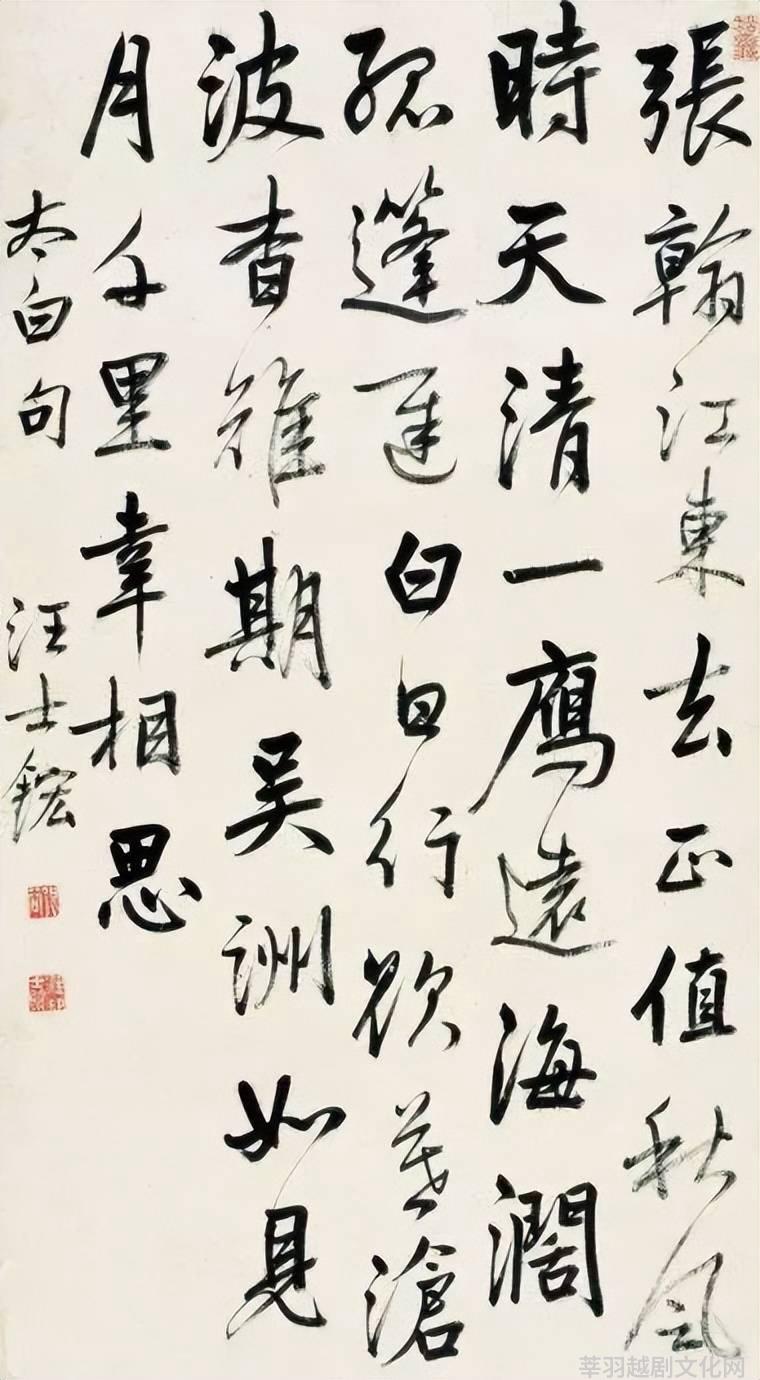 張翰江東去正值秋風
時天清一鴈遠海濶
孤蓬遲白日行欲暮滄
波杳難期吳洲如見
月千里幸相思
太白句
汪士鋐
莘羽越剧文化网